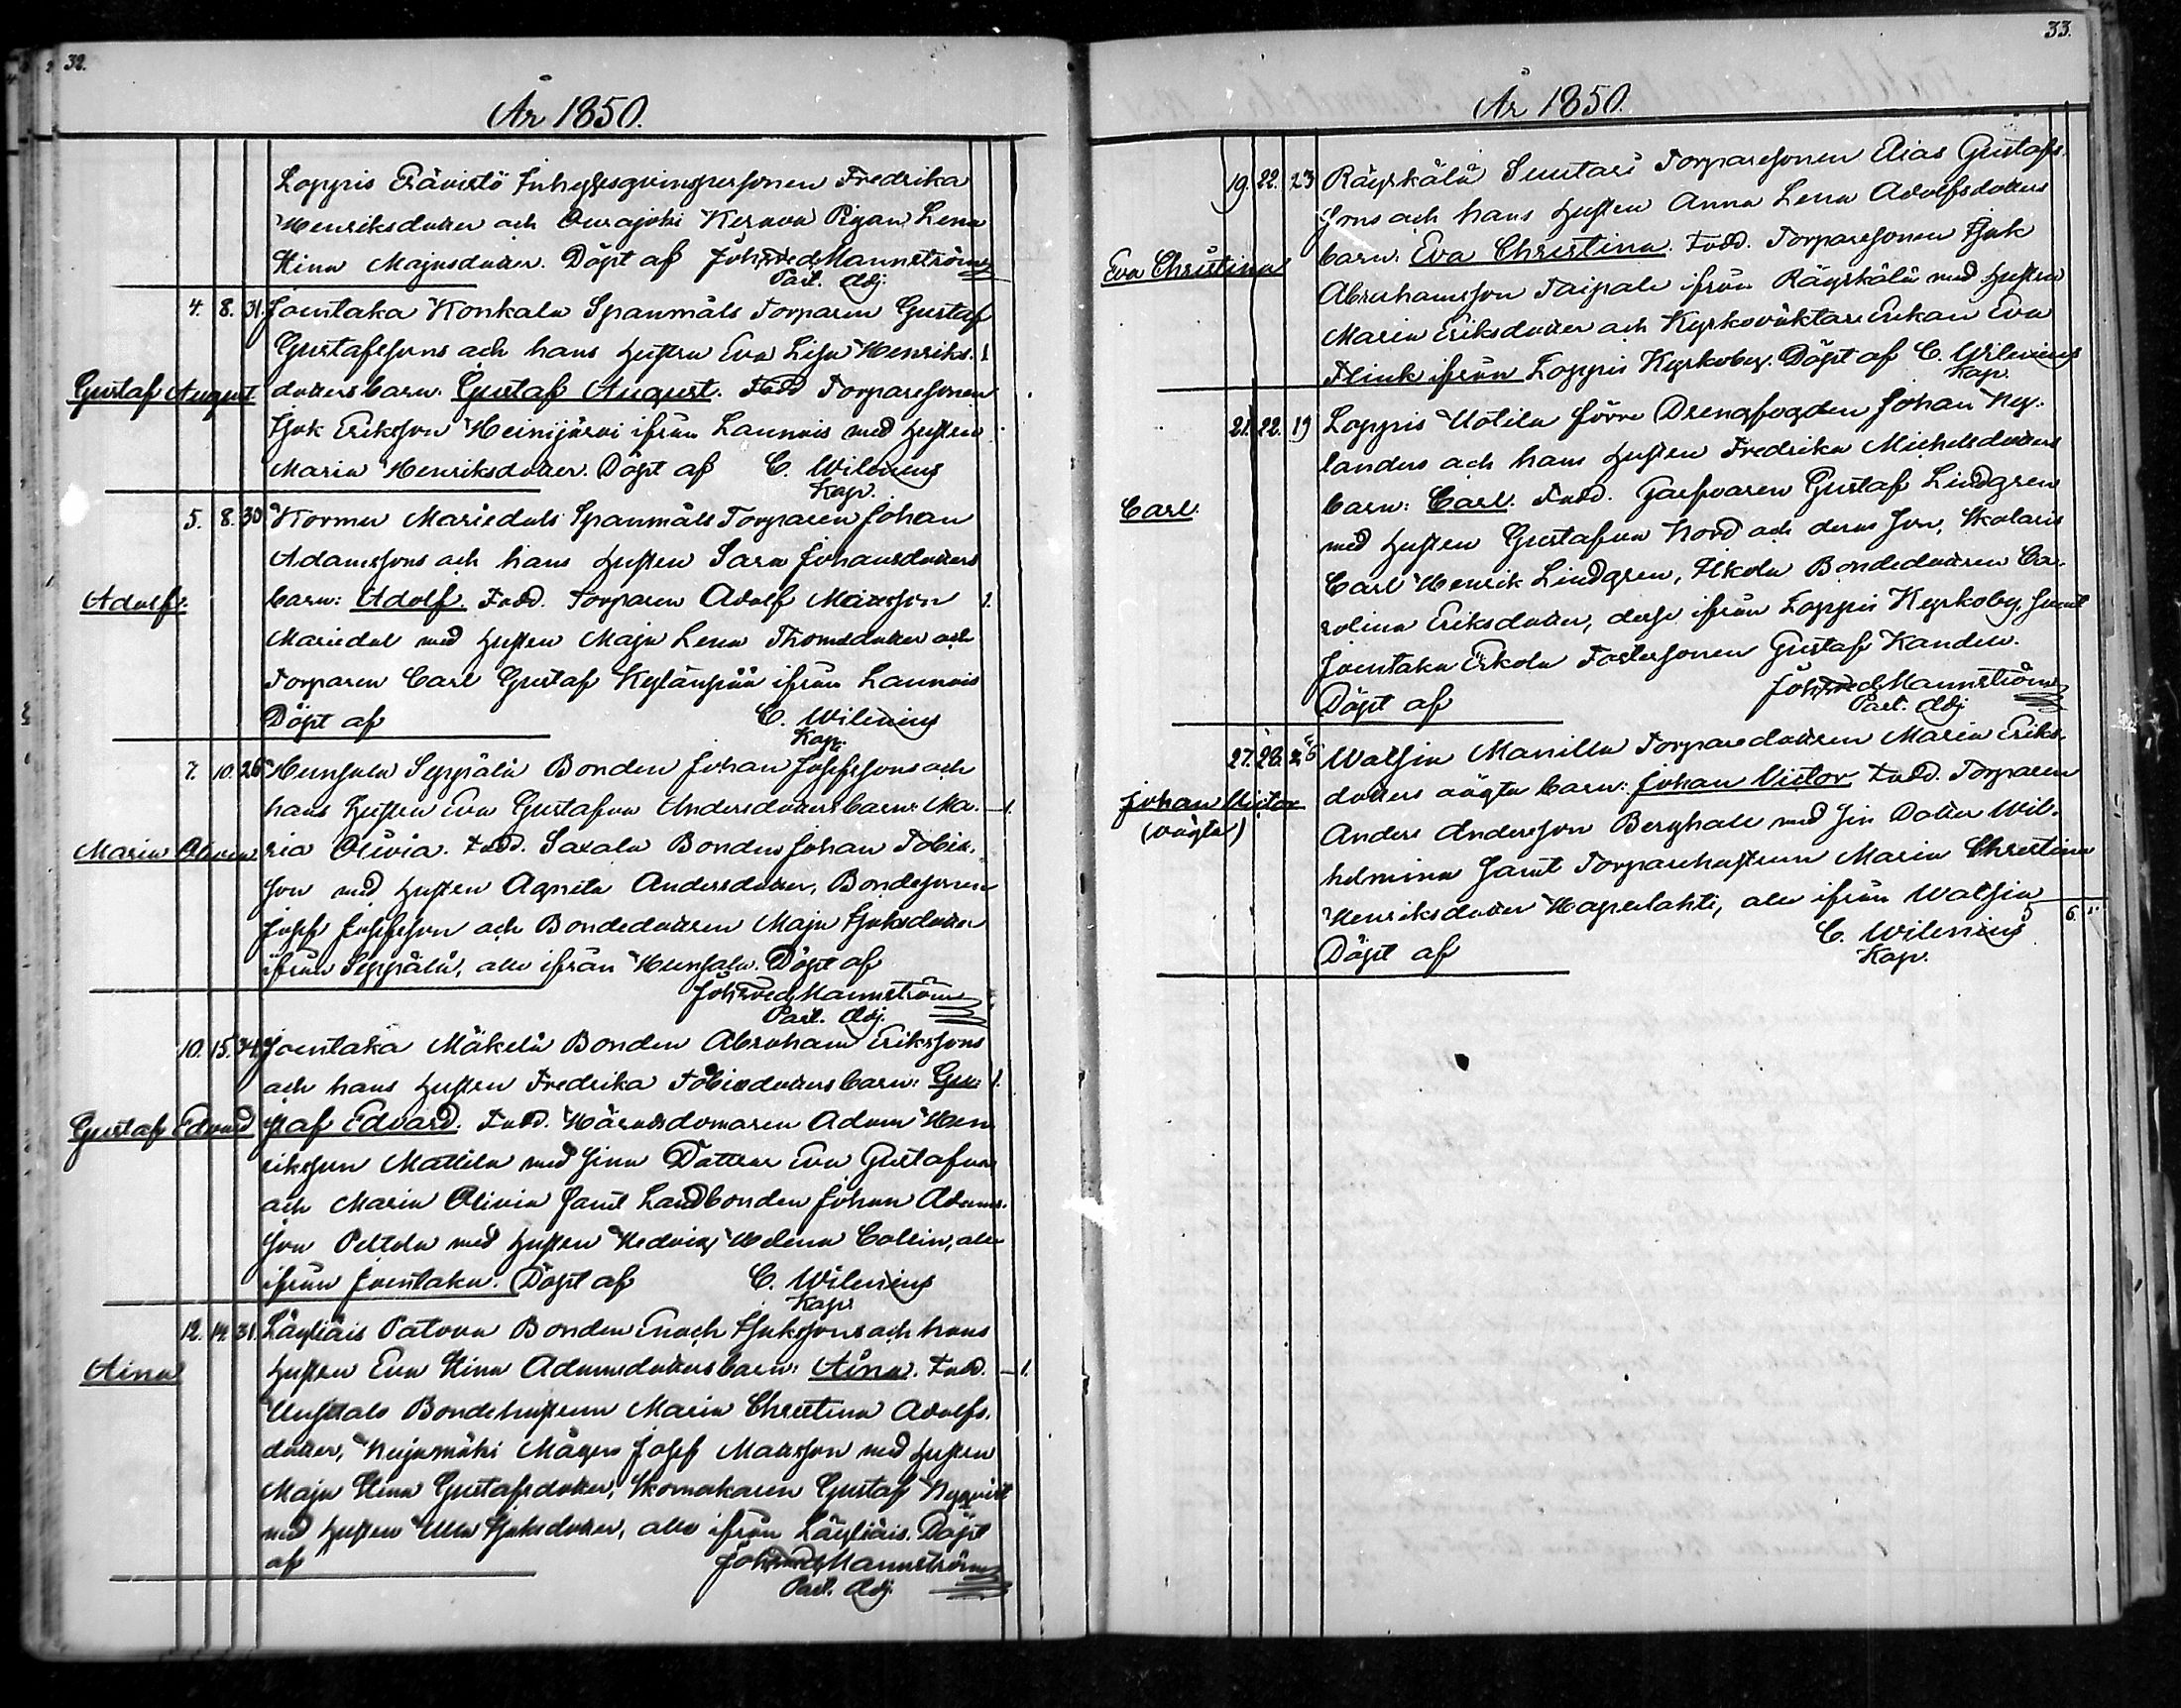 32.
År 1850.
Loppis Erävistö Inhysesqvinspersonen Fredrika
Henriksdotter och Kerava Pigan Lena
Stina Majasdotter. Döpt af Joh: Fred: Mannström
Past. Adj.
4. 8. 31. Joentaka Konkala Spanmåls Torparen Gustaf
Gustafssons och hans hustru Eva Lisa Henriks- 1.
Gustaf August. dotters barn. Gustaf August. Fadd. Torparesonen
Isak Eriksson Heinijärvi ifrån Launois med hustrun
Maria Henriksdotter. Döpt af C. Wilenius
Kap.
5. 8. 30 Kormu Mariedals Spanmåls Torparen Johan
Adamssons och hans hustru Sara Johansdotters
Adolf. barn: Adolf. Fadd. Torparen Adolf Matsson 1.
Mariedal med hustru Maja Lena Thomedotter och
Torparen Carl Gustaf Kylänpää ifrån Launois
Döpt af C. Wilenius
Kap.
7. 10. 26 Hunsala Seppälä Bonden Johan Josefssons och
hans hustru Eva Gustafva Andersdotters barn: Ma- 1.
Maria Olivia ria Olivia. Fadd. Saxala Bonden Johan Tobias-
son med hustru Agneta Andersdotter, Bondesonen
Josef Josefsson och Bondedottren Maja Isaksdotter
ifrån Seppälä, alla ifrån Hunsala. Döpt af
Joh: Fred: Mannström
Past. Adj.
10. 15. 34 Joentaka Mäkelä Bonden Abraham Erikssons
och hans hustru Fredrika Tobiasdotters barn: Gus- 1.
Gustaf Edvard staf Edvard. Fadd. Häradsdomaren Adam Hen-
riksson Mattila med sina Döttrar Eva Gustafva
och Maria Olivia samt Landbonden Johan Adams-
son Peltola med hustru Hedvig Helena Collin, alla
ifrån Joentaka. Döpt af C. Wilenius
Kap.
12. 14. 31. Läyliäis Patova Bonden Enoch Isakssons och hans
Aina hustru Eva Stina Adamsdotters barn: Aina. Fadd. 1.
Bondehustrun Maria Christina Adolfs-
dotter, Mågen Josef Matsson med hustru
Maja Stina Gustafsdotter, Skomakaren Gustaf Nyqvist
med hustru Ulla Isaksdotter, alla ifrån Läyliäis. Döpt
af Joh: Fred: Mannström
Past. Adj.
33.
År 1850.
19. 22. 23 Räyskälä Suutari Torparesonen Elias Gustafs-
sons och hans hustru Anna Lena Adolfsdotters
Eva Christina barn: Eva Christina. Fadd. Torparesonen Isak
Abrahamsson Taipale ifrån Räyskälä med hustru
Maria Eriksdotter och Kyrkovaktare Enkan Eva
Flink ifrån Loppis Kyrkoby. Döpt af C. Wilenius
Kap.
21. 22. 19 Loppis Uotila förre Drengfogden Johan Ny-
landers och hans hustru Fredrika Michelsdotters
Carl. barn: Carl. Fadd. Garfvaren Gustaf Lindgren
med hustru Gustafva Nord och deras son, Skolaris
Carl Henrik Lindgren, Eskola Bondedottren Ca-
rolina Eriksdotter, desse ifrån Loppis Kyrkoby, samt
Joentaka Eskola Fostersonen Gustaf Kandell.
Döpt af Joh: Fred: Mannström
Past. Adj
27. 28. 25 Watsia Manilla Torparedottren Maria Eriks-
Johan Victor dotters oägta barn: Johan Victor. Fadd. Torparen
(oägta) Anders Andersson Berghall med sin Dotter Wil-
helmina samt Torparehustrun Maria Christina
Henriksdotter Haapalahti, alla ifrån Watsia
5 6.
Döpt af C. Wilenius
Kap.